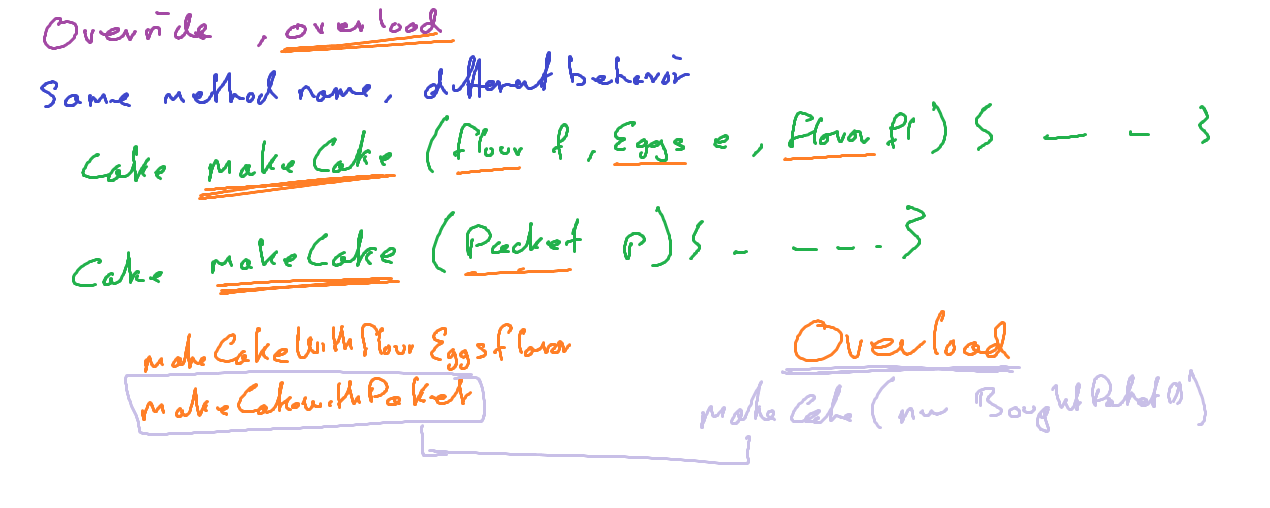 Override , overload
Same method name, different behavior
Cake makeCake (flour f, Eggs e, Flavor fl) { — - }
Cake makeCake (Packet p) { - - - - . }
makeCakeWithFlourEggsflavor
Overload
makeCakewithPaket
makeCake (new BoughtPaket())